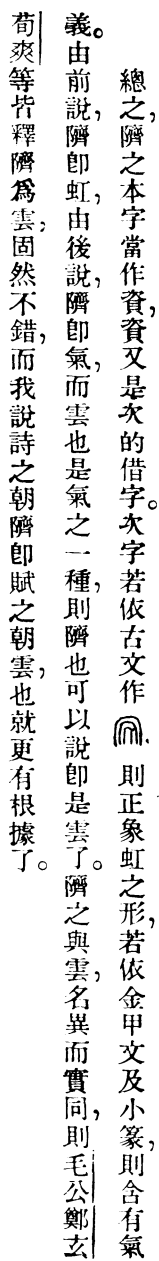 總之，隮之本字當作資，資又是次的借字。次字若依古文作，則正象虹之形，若依金甲文及小篆，則含有氣
義。由前說，隮卽虹，由後說，隮卽氣，而雲也是氣之一種，則隮也可以說卽是雲了。隮之與雲，名異而實同，則毛公鄭玄
荀爽等皆釋隮爲雲，固然不錯，而我說詩之朝隮卽賦之朝雲，也就更有根據了。